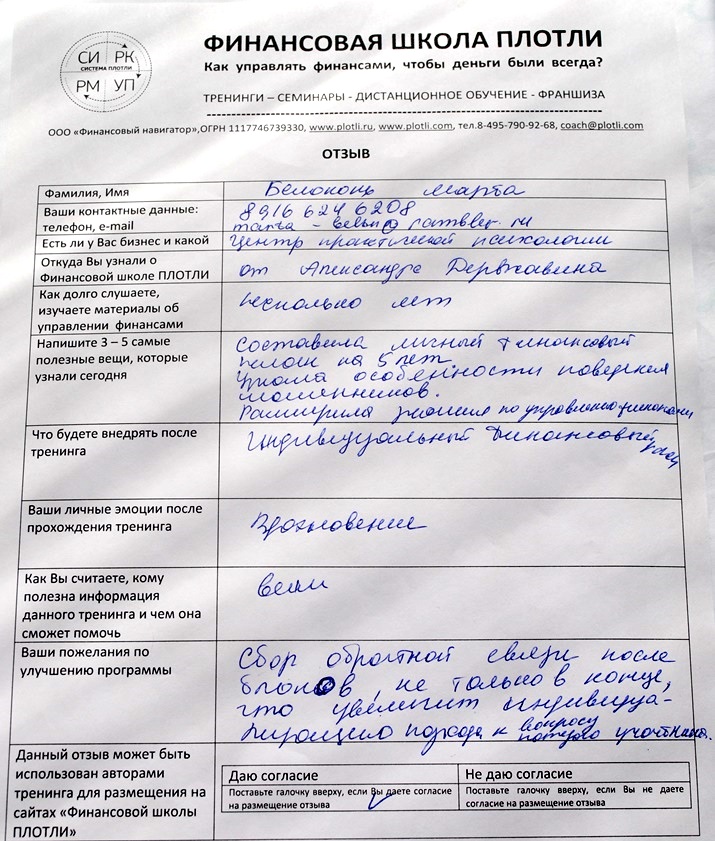 СИ РК
СИСТЕМА ПЛОТЛИ
РМ УП
ФИНАНСОВАЯ ШКОЛА ПЛОТЛИ
Как управлять финансами, чтобы деньги были всегда?
ТРЕНИНГИ – СЕМИНАРЫ - ДИСТАНЦИОННОЕ ОБУЧЕНИЕ - ФРАНШИЗА
ООО «Финансовый навигатор»,ОГРН 1117746739330, www.plotli.ru, www.plotli.com, тел.8-495-790-92-68, coach@plotli.com
ОТЗЫВ
Фамилия, Имя
Белоконь Марта
Ваши контактные данные:
телефон, e-mail
8916 624 6208
marta - belun@rambler.ru
Есть ли у Вас бизнес и какой
Центр практической психологии
Откуда Вы узнали о
Финансовой школе ПЛОТЛИ
от Александра Державина
Как долго слушаете,
изучаете материалы об
управлении финансами
несколько лет
Напишите 3 – 5 самые
полезные вещи, которые
узнали сегодня
Составила личный финансовый
план на 5 лет.
Узнала особенности поведения
мошенников.
Расширила знания по управлению рисками
Что будете внедрять после
тренинга
Индивидуальный Финансовый
план
Ваши личные эмоции после
прохождения тренинга
Вдохновение
Как Вы считаете, кому
полезна информация
данного тренинга и чем она
сможет помочь
всем
Ваши пожелания по
улучшению программы
Сбор обратной связи после
блоков, не только в конце,
что увеличит индивидуа-
лизацию подхода к вопросу
каждого участника.
Данный отзыв может быть
использован авторами
тренинга для размещения на
сайтах «Финансовой школы
ПЛОТЛИ»
Даю согласие
Поставьте галочку вверху, если Вы даете согласие
на размещение отзыва
Не даю согласие
Поставьте галочку вверху, если Вы не даете
согласие на размещение отзыва